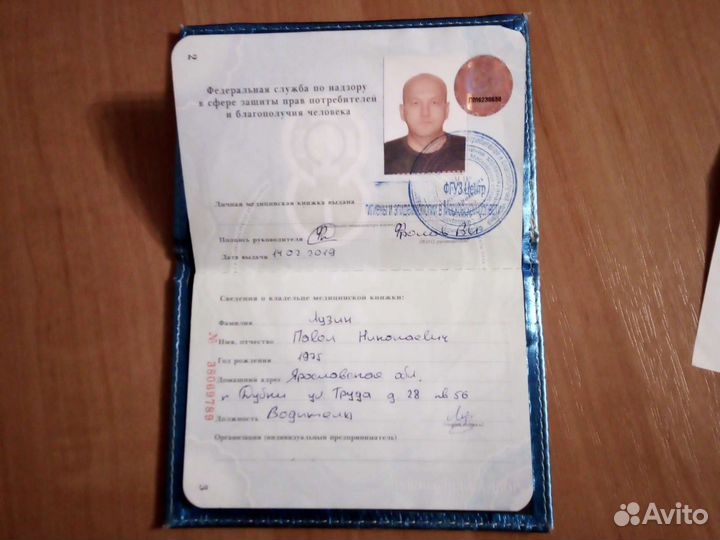 2
Федеральная служба по надзору
в сфере защиты прав потребителей
и благополучия человека
Личная медицинская книжка выдана
ФГУЗ Центр
гигиены и эпидемиологии в
Подпись руководителя
Дата выдачи 14 02 2019
Сведения о владельце медицинской книжки:
Фамилия Лузин
Имя, отчество Павел Николаевич
Год рождения 1975
Домашний адрес Ярославская обл.
п Дубки ул Труда д 28 кв 56
Должность Водитель
Организация (индивидуальный предприниматель)
№ 36069789
3
Avito